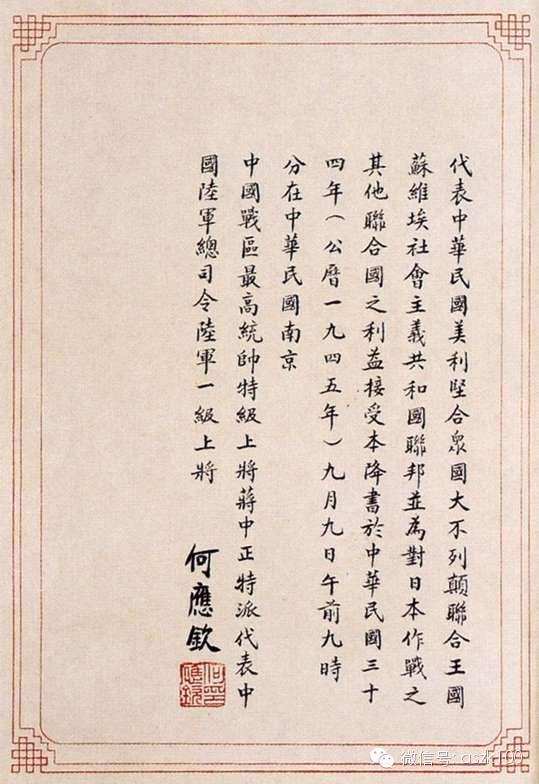 代表中華民國美利堅合眾國大不列顛聯合王國
蘇維埃社會主義共和國聯邦並為對日本作戰之
其他聯合國之利益接受本降書於中華民國三十
四年（公曆一九四五年）九月九日午前九時
分在中華民國南京
中國戰區最高統帥特級上將蔣中正特派代表中
國陸軍總司令陸軍一級上將
何應欽
何應欽
微信号: